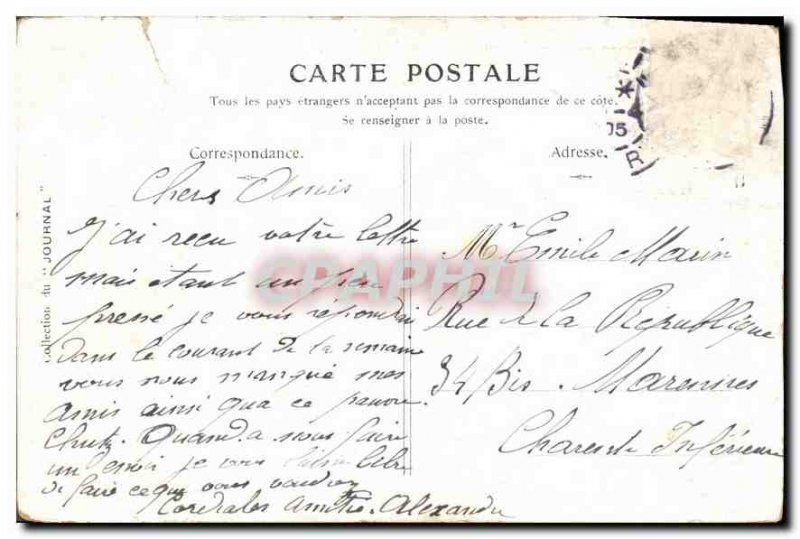 CARTE POSTALE
Tous les pays étrangers n'acceptant pas la correspondance de ce côté.
Se renseigner à la poste.
Correspondance.
Adresse.
Collection du "JOURNAL"
Chers Amis
J'ai reçu votre lettre
mais étant un peu
pressé je vous répondrai
dans le courant de la semaine
vous nous manqué mes
amis ainsi qua ce pauvre
Quand a nous faire
un envoi je vous libre
de faire ce que vous voudrez
Cordiales Amitié. Alexandre
Mr Emile Marin
Rue de la République
34 Bis Marennes
Charente Inférieure
CPAPHIL
05